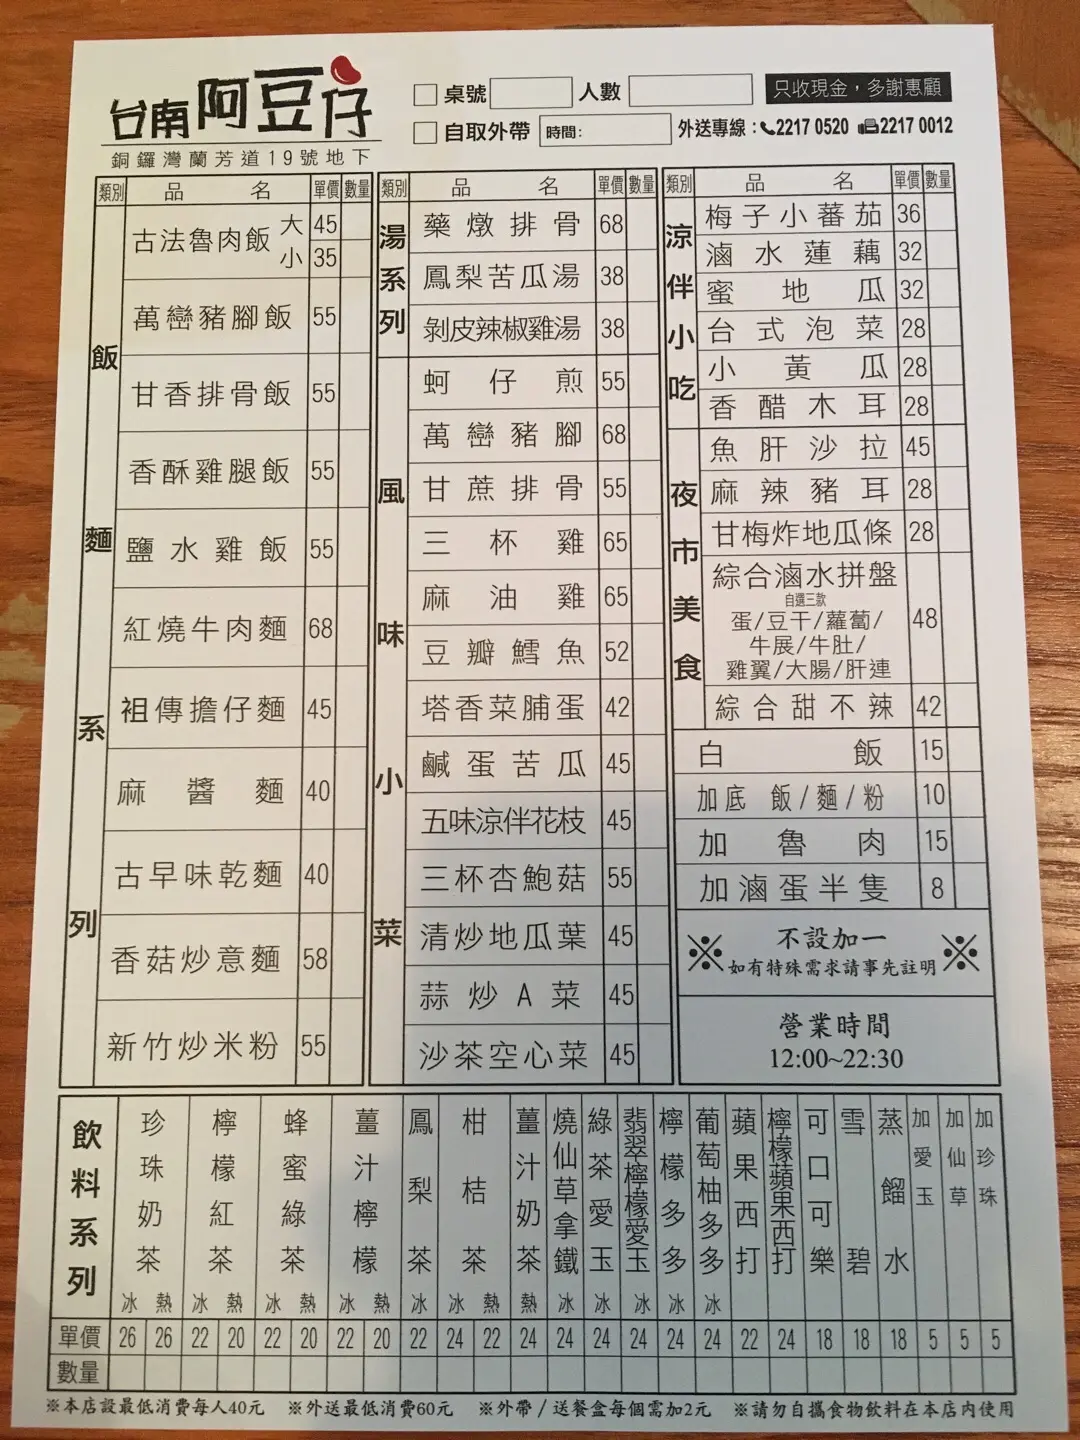 台南阿豆仔
銅鑼灣蘭芳道19號地下
桌號 人數 只收現金，多謝惠顧
自取外帶 時間： 外送專線：2217 0520 2217 0012
類別 品名 單價 數量
飯麵系列
古法魯肉飯 大 45
小 35
萬巒豬腳飯 55
甘香排骨飯 55
香酥雞腿飯 55
鹽水雞飯 55
紅燒牛肉麵 68
祖傳擔仔麵 45
麻醬麵 40
古早味乾麵 40
香菇炒意麵 58
新竹炒米粉 55
類別 品名 單價 數量
湯系列
藥燉排骨 68
鳳梨苦瓜湯 38
剝皮辣椒雞湯 38
風味小菜
蚵仔煎 55
萬巒豬腳 68
甘蔗排骨 55
三杯雞 65
麻油雞 65
豆瓣鱈魚 52
塔香菜脯蛋 42
鹹蛋苦瓜 45
五味涼伴花枝 45
三杯杏鮑菇 55
清炒地瓜葉 45
蒜炒A菜 45
沙茶空心菜 45
類別 品名 單價 數量
涼伴小吃
梅子小蕃茄 36
滷水蓮藕 32
蜜地瓜 32
台式泡菜 28
小黃瓜 28
香醋木耳 28
夜市美食
魚肝沙拉 45
麻辣豬耳 28
甘梅炸地瓜條 28
綜合滷水拼盤 48
自選三款
蛋/豆干/蘿蔔/
牛展/牛肚/
雞翼/大腸/肝連
綜合甜不辣 42
白飯 15
加底 飯/麵/粉 10
加魯肉 15
加滷蛋半隻 8
※ 不設加一 ※
如有特殊需求請事先註明
營業時間
12:00~22:30
飲料系列 單價 數量
珍珠奶茶 冰 26 熱 26
檸檬紅茶 冰 22 熱 20
蜂蜜綠茶 冰 22 熱 20
薑汁檸檬 冰 22 熱 20
鳳梨茶 冰 22
柑桔茶 冰 24 熱 22
薑汁奶茶 熱 24
燒仙草拿鐵 冰 24
綠茶愛玉 冰 24
翡翠檸檬愛玉 冰 24
檸檬多多 冰 24
葡萄柚多多 冰 24
蘋果西打 22
檸檬蘋果西打 24
可口可樂 18
雪碧 18
蒸餾水 18
加愛玉 5
加仙草 5
加珍珠 5
※本店設最低消費每人40元 ※外送最低消費60元 ※外帶/送餐盒每個需加2元 ※請勿自攜食物飲料在本店內使用